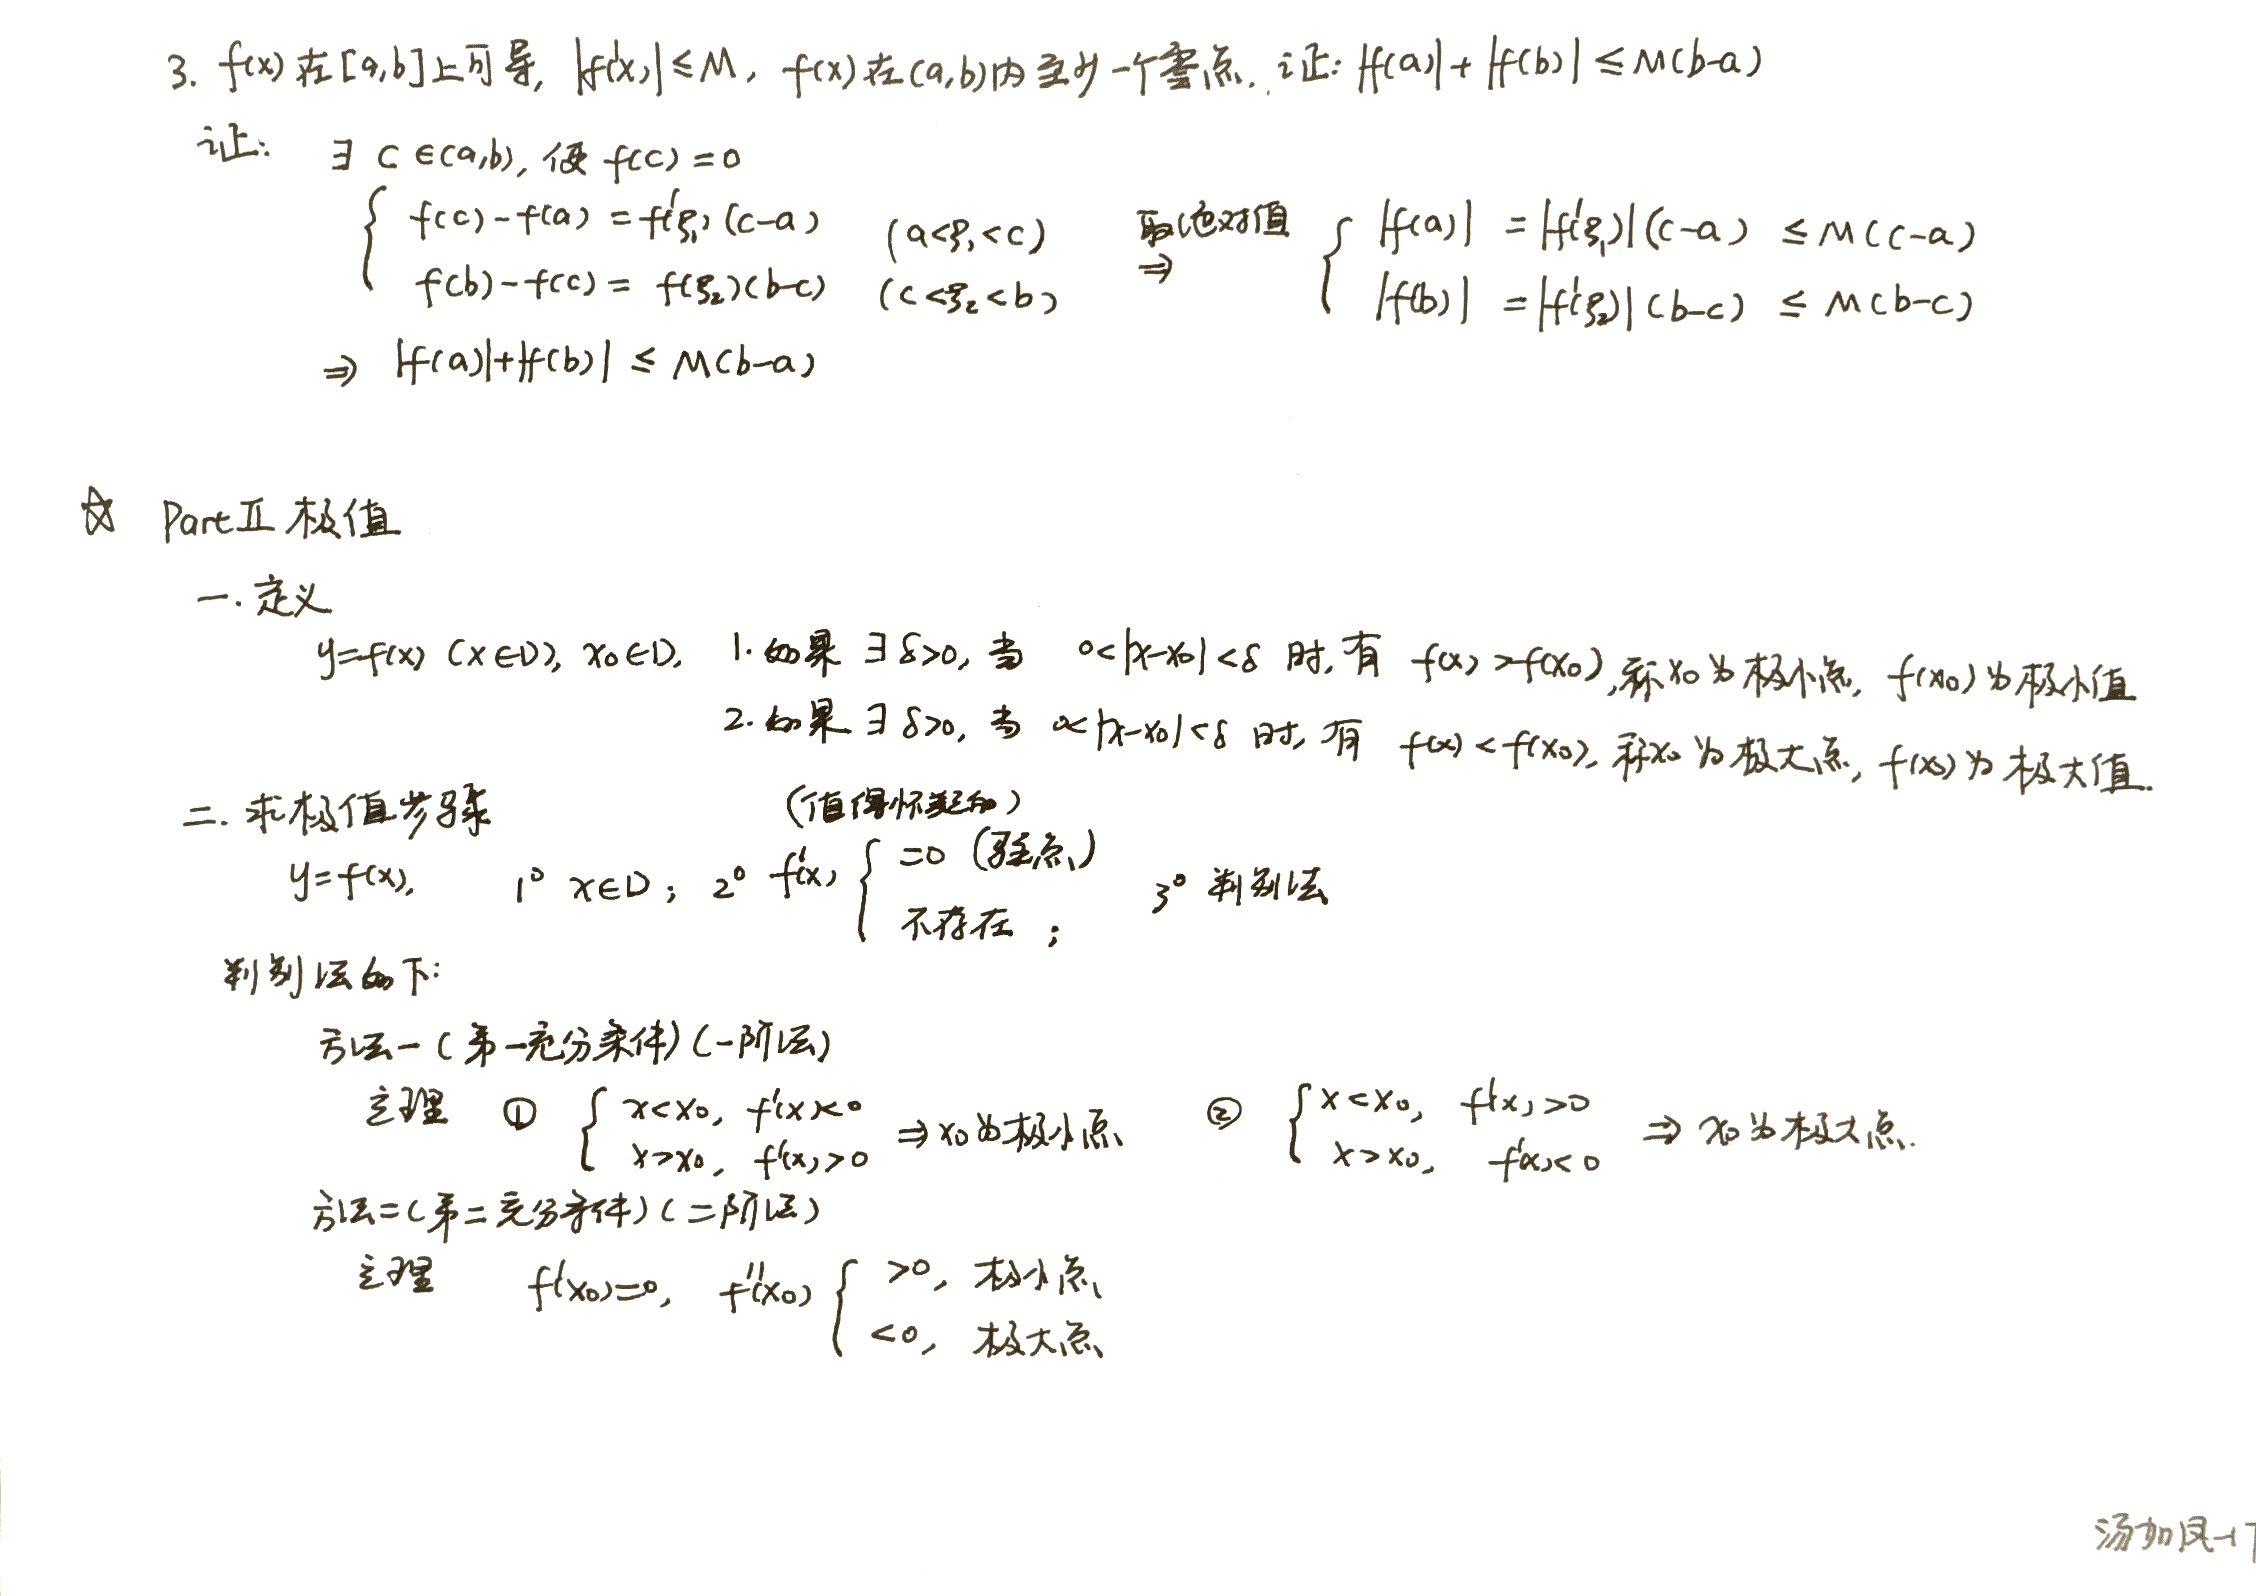 3. f(x)在[a,b]上可导, |f'(x)|≤M, f(x)在(a,b)内至少一个零点. 证: |f(a)|+|f(b)|≤M(b-a)
证: ∃ c∈(a,b), 使 f(c)=0
{ f(c)-f(a)=f'(ξ₁)(c-a) (a<ξ₁<c) 取绝对值 ⇒ { |f(a)| =|f'(ξ₁)|(c-a) ≤M(c-a)
f(b)-f(c)= f(ξ₂)(b-c) (c<ξ₂<b) |f(b)| =|f'(ξ₂)|(b-c) ≤ M(b-c)
⇒ |f(a)|+|f(b)| ≤ M(b-a)
☆ Part Ⅱ 极值
一. 定义
y=f(x) (x∈D), x₀∈D, 1. 如果 ∃δ>0, 当 0<|x-x₀|<δ 时, 有 f(x)>f(x₀), 称x₀为极小点, f(x₀)为极小值
2. 如果 ∃δ>0, 当 0<|x-x₀|<δ 时, 有 f(x)<f(x₀), 称x₀为极大点, f(x₀)为极大值.
二. 求极值步骤 (值得怀疑的)
y=f(x), 1° x∈D; 2° f'(x) { =0 (驻点) 3° 判别法
不存在 ;
判别法如下:
方法一(第一充分条件)(一阶法)
定理 ① { x<x₀, f'(x)<0 ⇒x₀为极小点 ② { x<x₀, f'(x)>0 ⇒ x₀为极大点.
x>x₀, f'(x)>0 x>x₀, f'(x)<0
方法二(第二充分条件)(二阶法)
定理 f'(x₀)=0, f''(x₀) { >0, 极小点
<0, 极大点
汤加凤-17